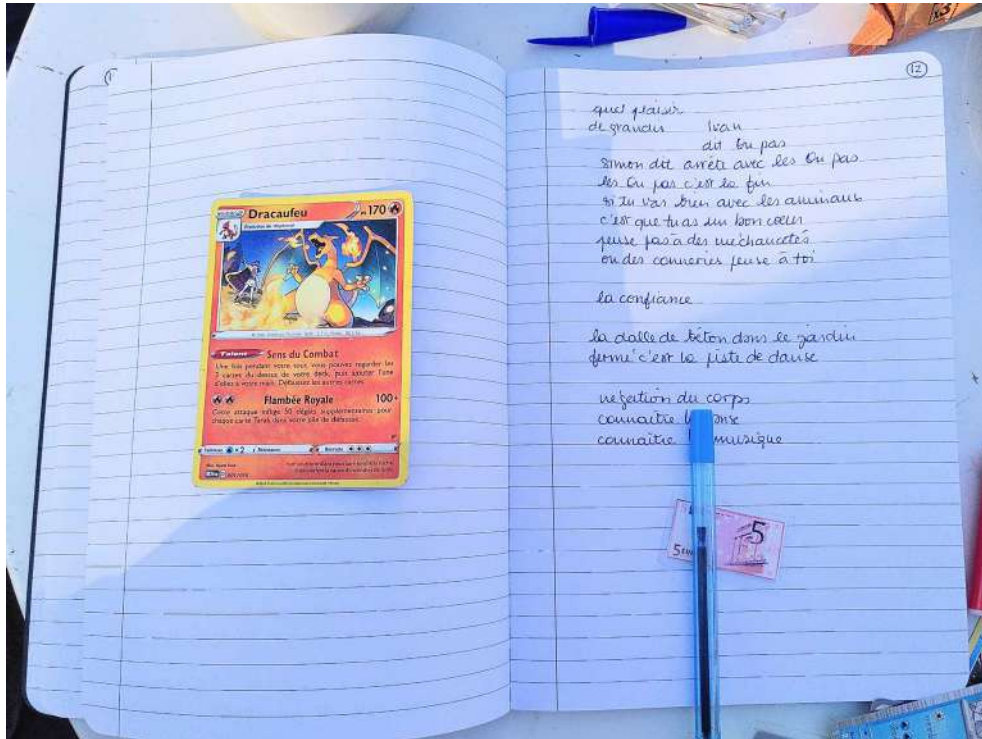 12
quel plaisir
de grandir Ivan
dit ou pas
Simon dit arrête avec les ou pas
les ou pas c'est la fin
si tu vas bien avec les animaux
c'est que tu as un bon coeur
pense pas à des méchancetés
ou des conneries pense à toi
la confiance
la dalle de béton dans le jardin
fermé c'est la piste de danse
du corps
connaître
connaître musique
5
5
Dracaufeu 170
Talent Sens du Combat
Une fois pendant votre tour, vous pouvez regarder les
2 cartes du dessus de votre deck, puis ajouter l'une
d'elles à votre main. Défaussez les autres cartes.
Flambée Royale 100+
Cette attaque inflige 50 dégâts supplémentaires pour
chaque carte Tarak dans votre pile de défausse.
×2
x3